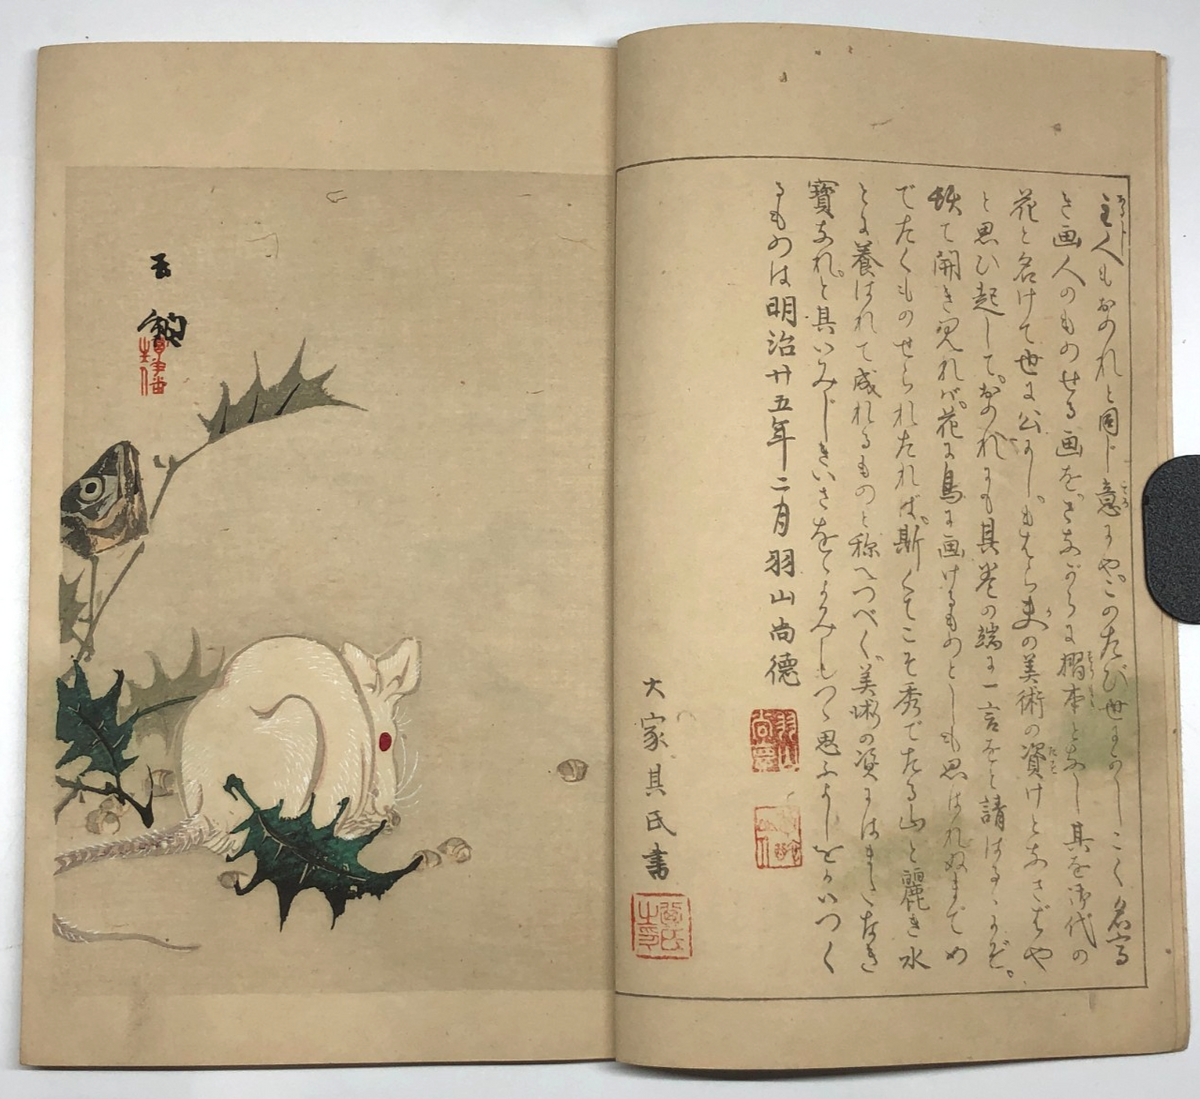 主人もおのれと同じ意にや。このたび世にめしこく名高
き画人のものせる画を。さながらに摺本となし 其を御代の
花と名けて世に公にし。もはら夫の美術の資けとなさばや
と思ひ起して。おのれにも其巻の端に一言をと請はるゝにぞ。
て開き見れバ。花に鳥に画けるものとしも思はれぬまでめ
でたくものせられたれば。斯くてこそ秀でたる山と麗き水
とに養はれて成れるものと称へつべく。美術の資にはまたなき
寳なれ。と其いみじきいさをよみしもつゝ思ふよしを
るものは明治廿五年二月 羽山尚德
大家其氏書
玉